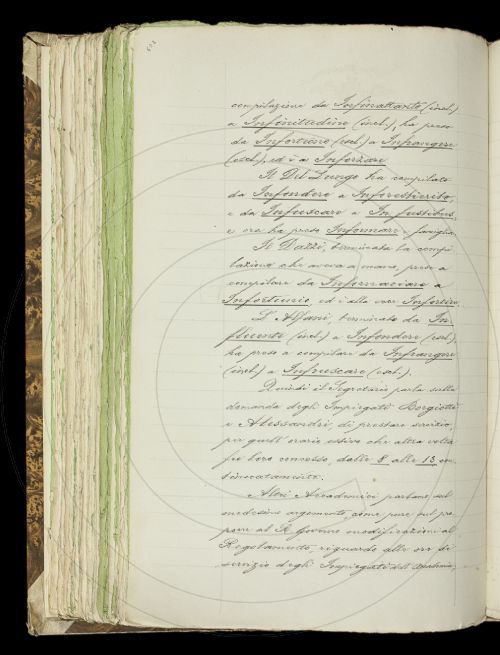 compilazione da Infinattanto (incl.)
a Infinitudine (incl.), ha preso
da Infortunio (escl.) a Infrangere
(escl.), ed è a Inforzare.
Il Del Lungo ha compilato
da Infondere a Inforestierito,
e da Infuscare a In fustibus,
e ora ha preso Informare e famiglia.
Il Dazzi, terminata la compi
lazione che aveva a mano, prese a
compilare da Infornaciare a
Infortunio, ed è alla voce Infortire.
L'Alfani, terminato da In-
fluente (incl.) a Infondere (escl.)
ha preso a compilare da Infrangere
(incl.) a Infruscare (escl.).
Quindi il Segretario parla sulla
domanda degli Impiegati Borgiotti
e Alessandri, di prestare servizio,
per quell'orario estivo che altra volta
fu loro concesso, dalle 8 alle 13 con
tinuatamente.
Altri Accademici parlano sul
medesimo argomento, come pure sul pro-
porre al R. Governo modificazioni al
Regolamento, riguardo alle ore di
servizio degli Impiegati dell'Accademia,